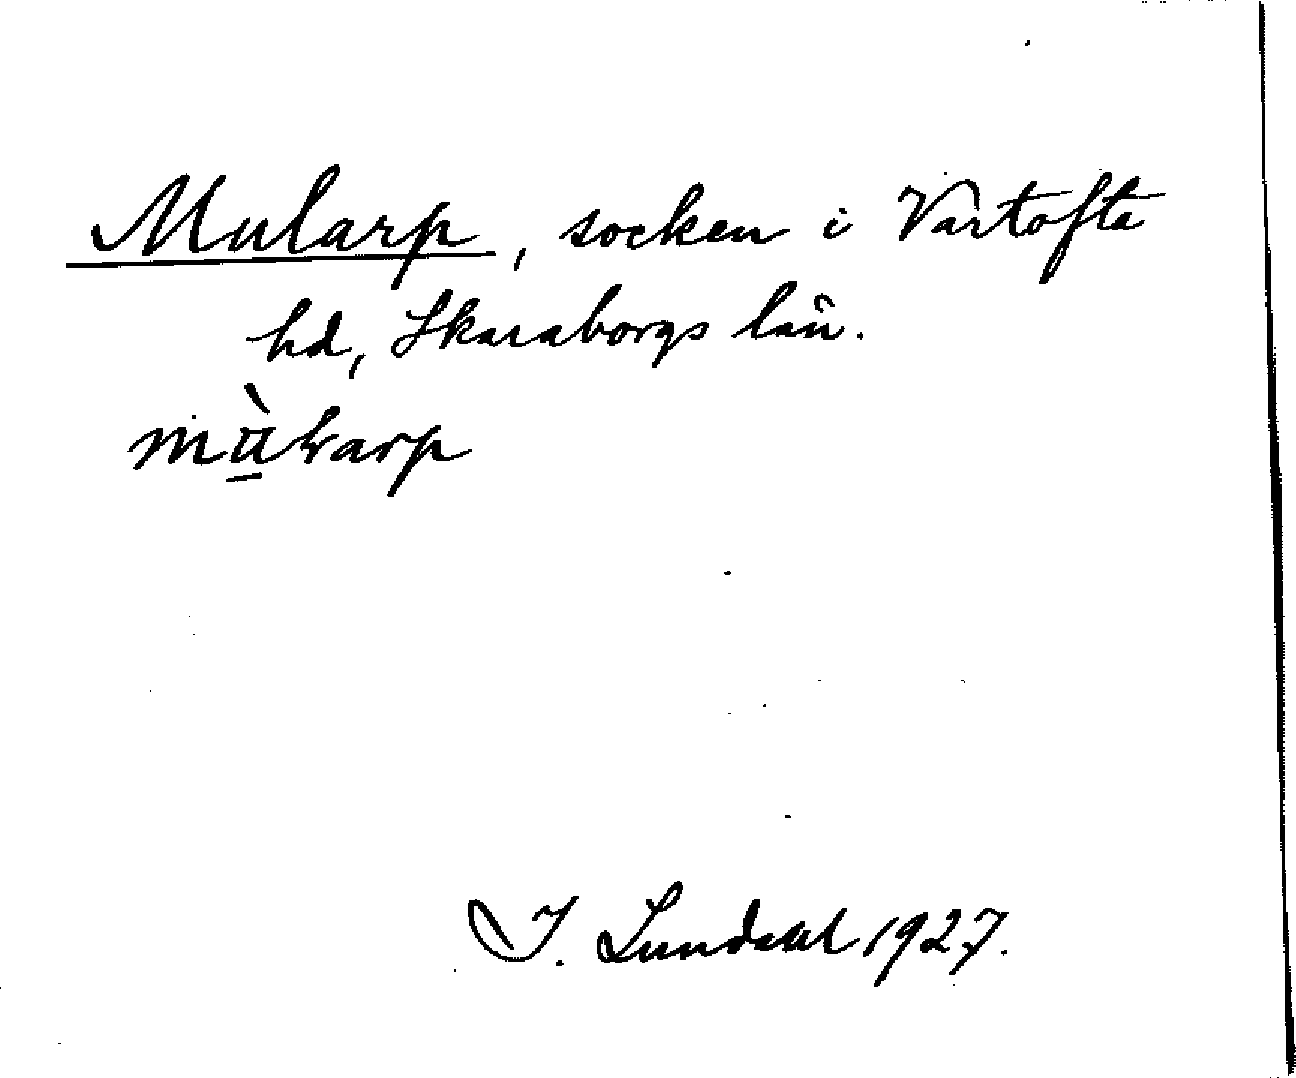 Mularp, socken i Vartofta
hd, Skaraborgs län.
I. Lundahl 1927.